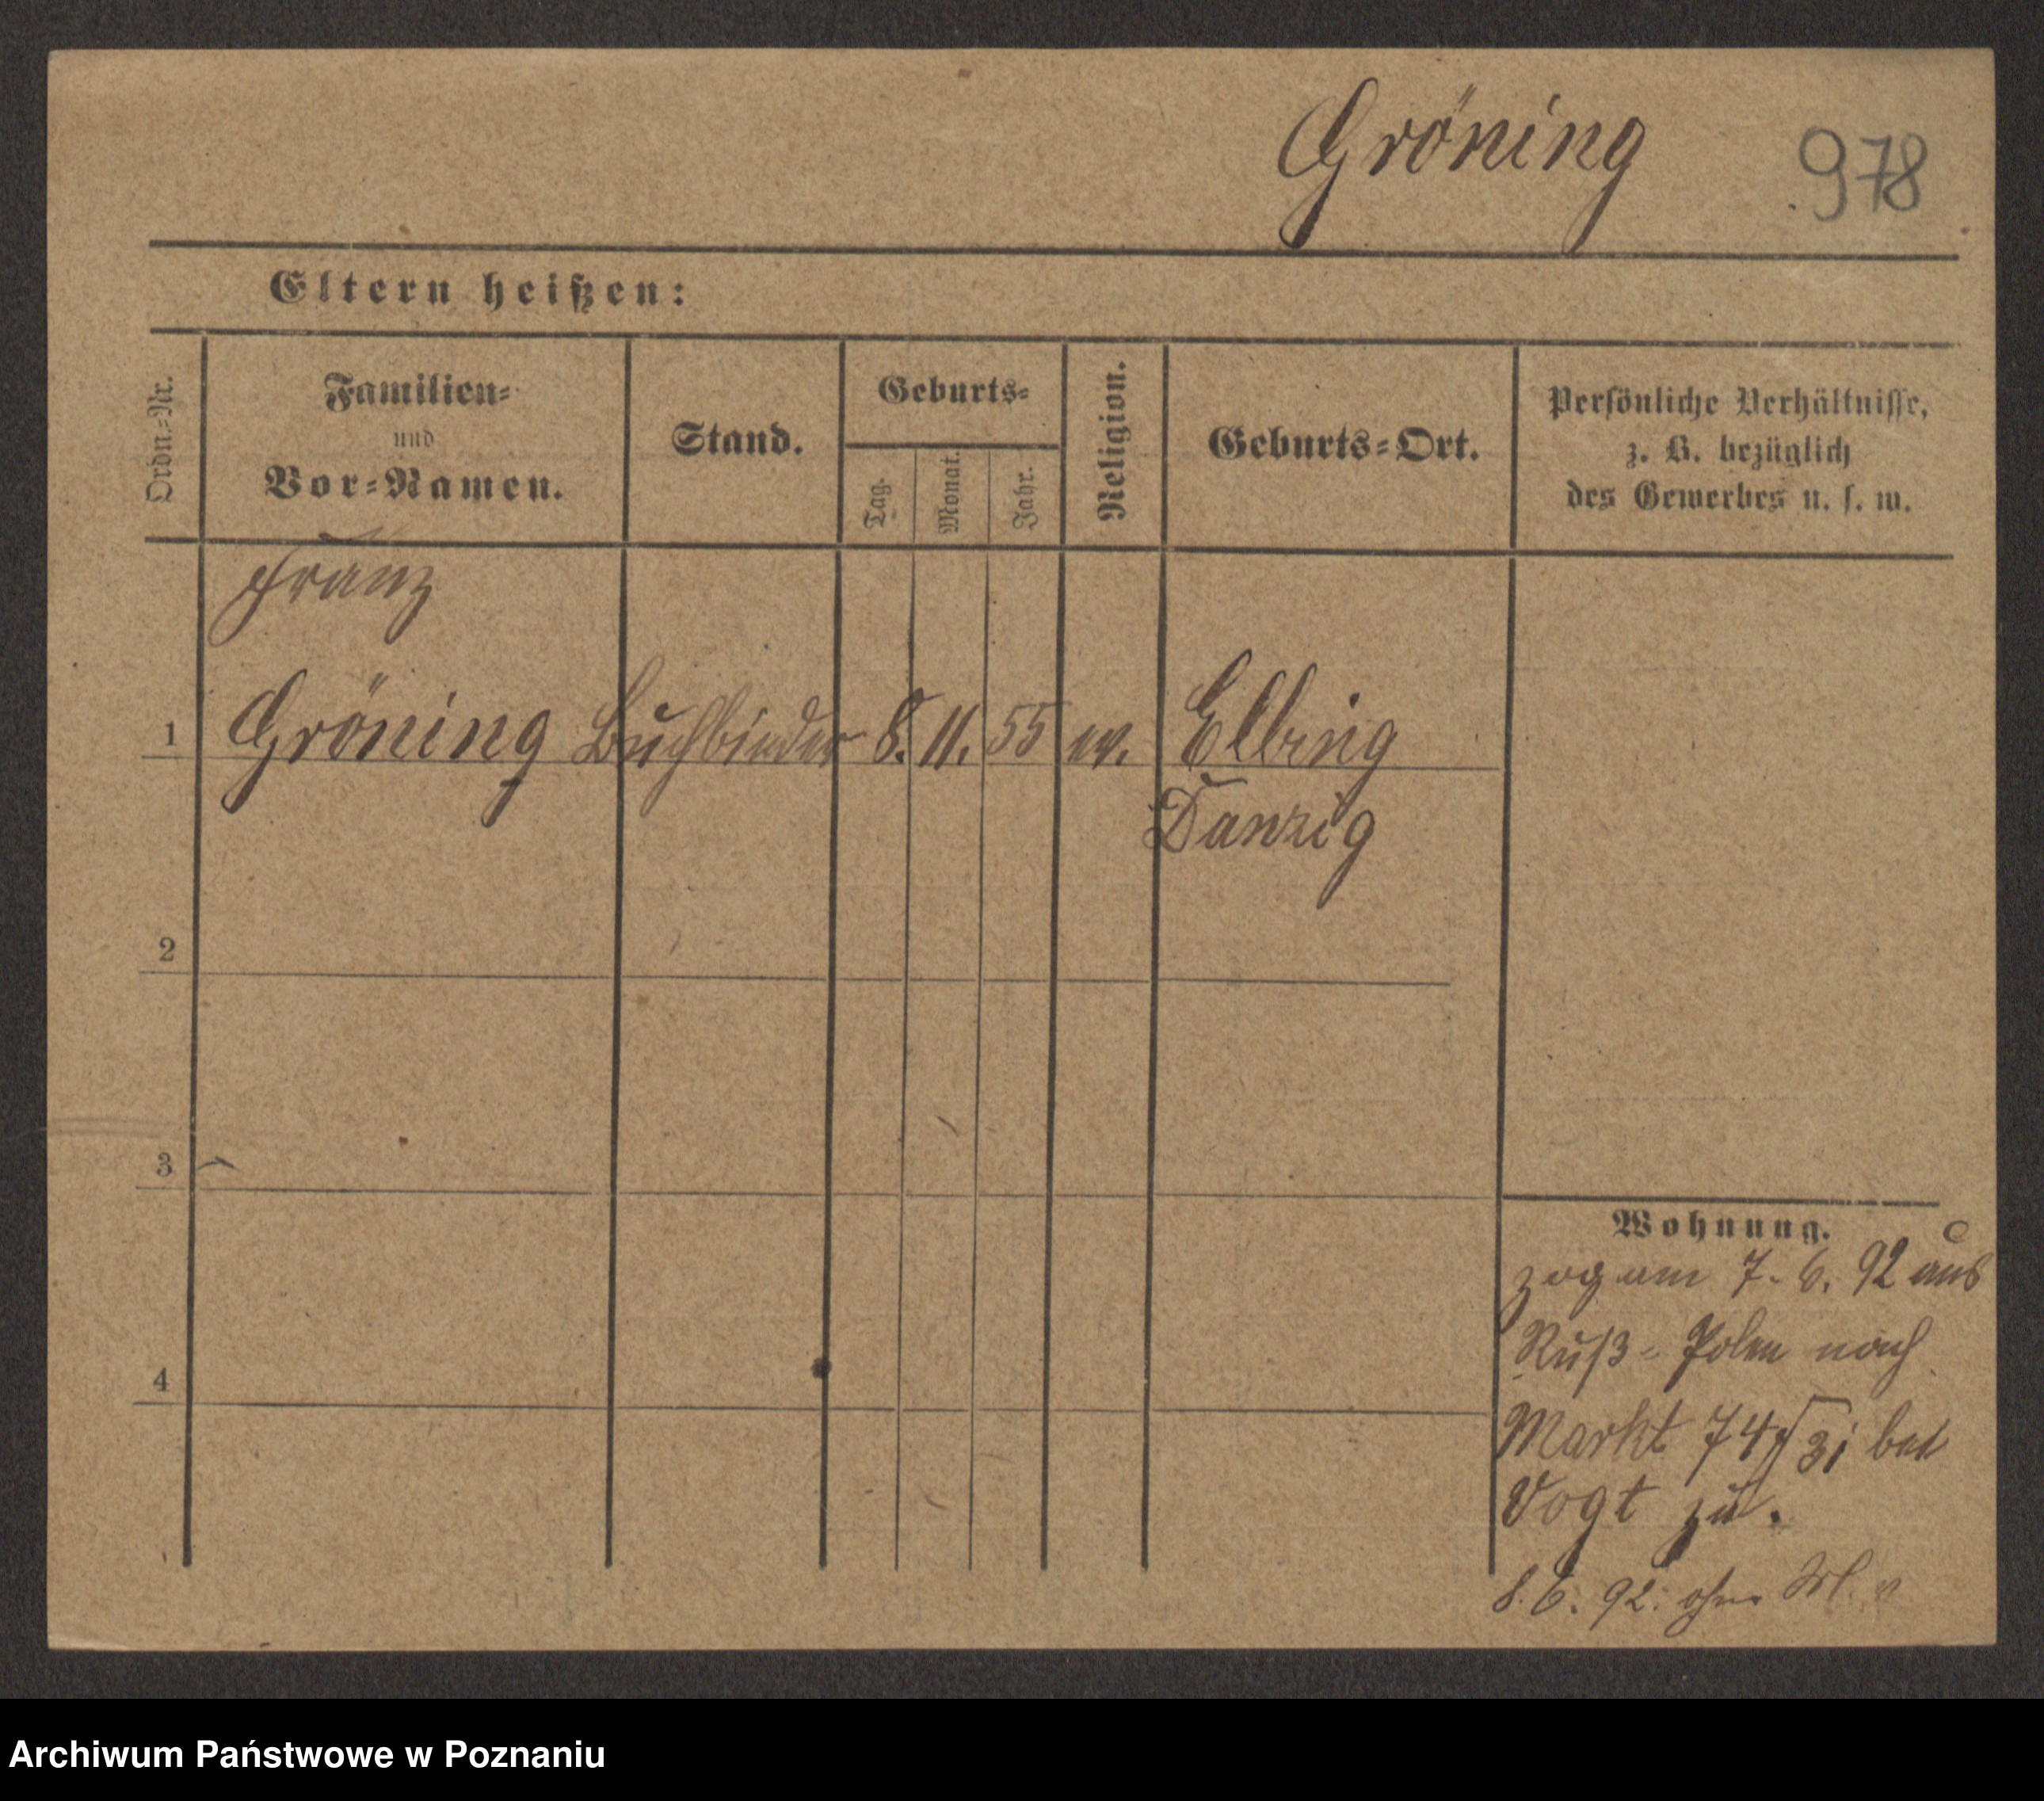 Gröning 978
Eltern heißen:
Ordn.-Nr.
Familien-
und
Vor-Namen.
Stand.
Geburts-
Tag.
Monat.
Jahr.
Religion.
Geburts-Ort.
Persönliche Verhältnisse,
z. B. bezüglich
des Gewerbes u. s. w.
Franz
1 Gröning Buchbinder 8. 11. 55 ev. Elbing
Danzig
2
3
4
Wohnung.
zog am 7. 6. 92 aus
Ruß- Polen nach
Markt 74 bei
Vogt zu.
8. 6. 92. ohne
Archiwum Państwowe w Poznaniu